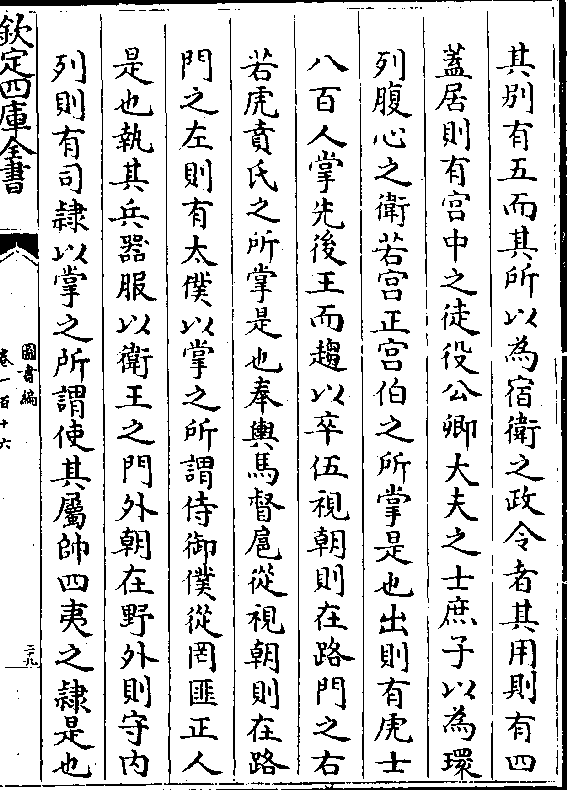 其別有五而其所以為宿衛之政令者其用則有四
蓋居則有宫中之徒役公卿大夫之士庶子以為環
列腹心之衛若宫正宫伯之所掌是也出則有虎士
八百人掌先後王而趨以卒伍視朝則在路門之右
若虎賁氏之所掌是也奉輿馬督扈從視朝則在路
門之左則有太僕以掌之所謂侍御僕從罔匪正人
是也執其兵器服以衛王之門外朝在野外則守内
列則有司隸以掌之所謂使其屬帥四夷之隸是也
欽定四庫全書
圖書編
卷一百十六
二九